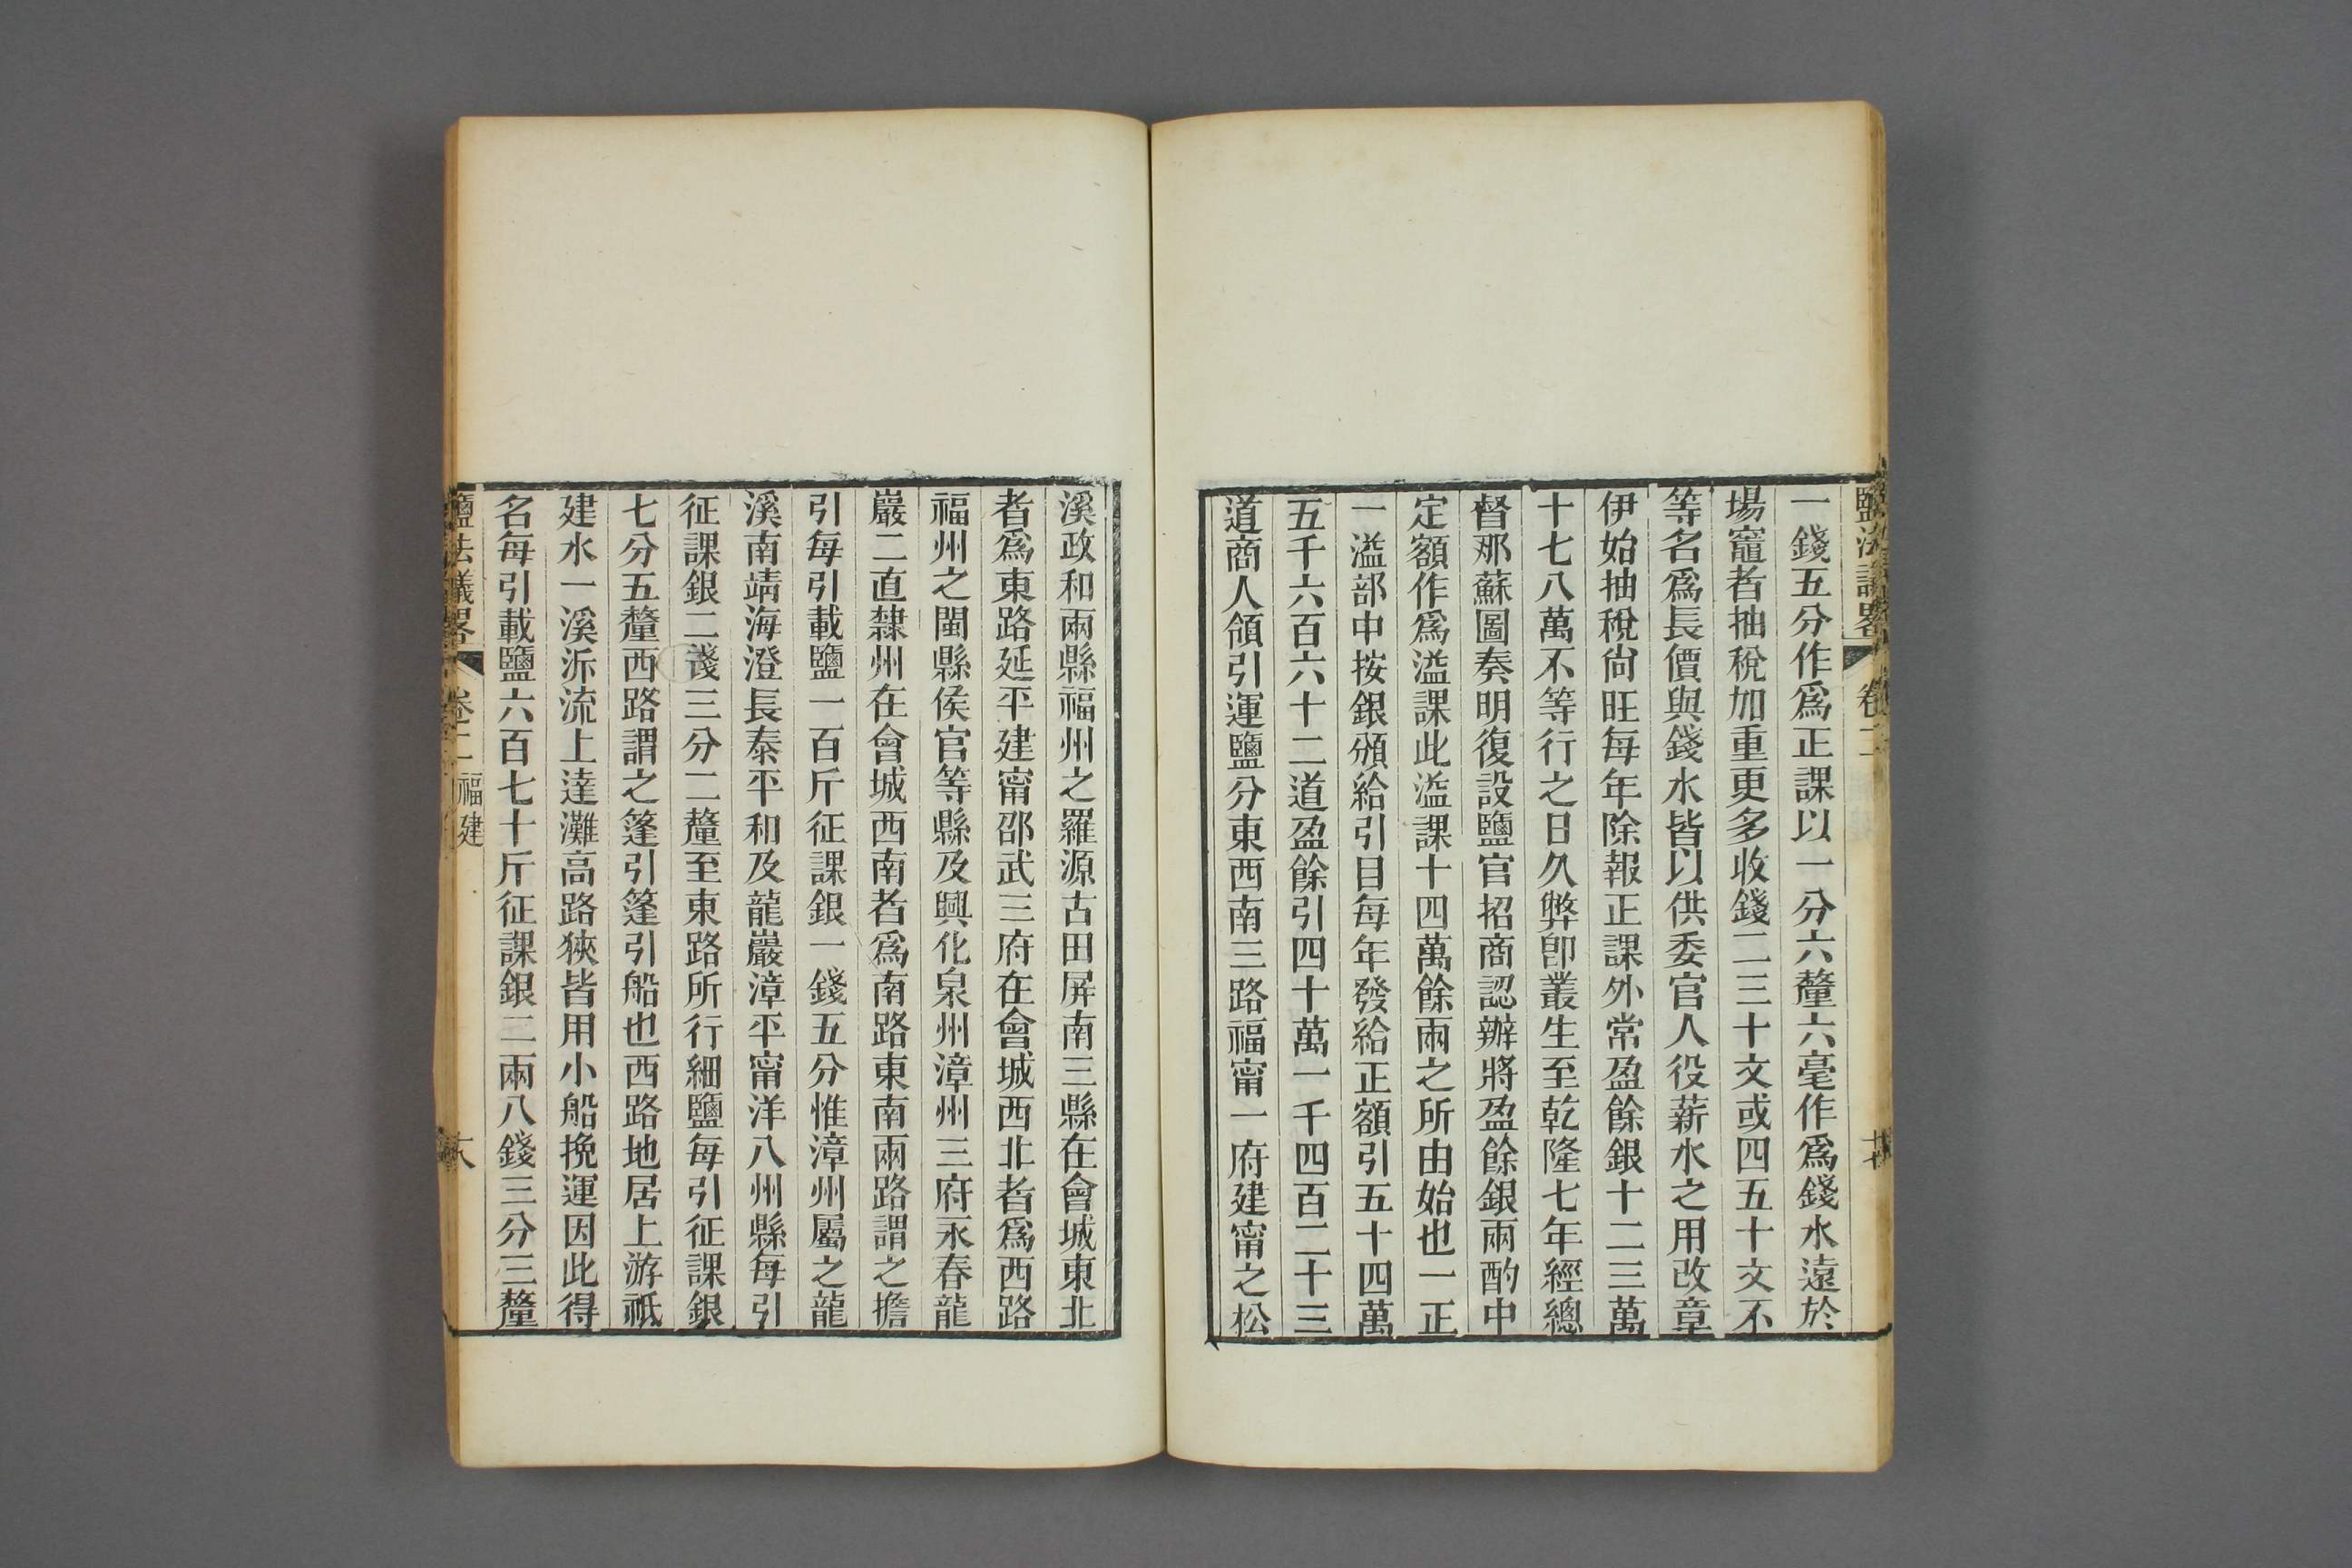 鹽法議畧 卷二
一錢五分作爲正課以一分六釐六毫作爲錢水遠於
場竈者抽稅加重更多收錢二三十文或四五十文不
等名爲長價與錢水皆以供委官人役薪水之用改章
伊始抽稅尙旺每年除報正課外常盈餘銀十二三萬
十七八萬不等行之日久弊卽叢生至乾隆七年經總
督那蘇圖奏明復設鹽官招商認辦將盈餘銀兩酌中
定額作爲溢課此溢課十四萬餘兩之所由始也一正
一溢部中按銀頒給引目每年發給正額引五十四萬
五千六百六十二道盈餘引四十萬一千四百二十三
道商人領引運鹽分東西南三路福甯一府建甯之松
溪政和兩縣福州之羅源古田屏南三縣在會城東北
者爲東路延平建甯邵武三府在會城西北者爲西路
福州之閩縣侯官等縣及興化泉州漳州三府永春龍
巖二直隸州在會城西南者爲南路東南兩路謂之擔
引每引載鹽一百斤征課銀一錢五分惟漳州屬之龍
溪南靖海澄長泰平和及龍巖漳平甯洋八州縣每引
征課銀二錢三分二釐至東路所行細鹽每引征課銀
七分五釐西路謂之篷引篷引船也西路地居上游祇
建水一溪泝流上達灘高路狹皆用小船挽運因此得
名每引載鹽六百七十斤征課銀二兩八錢三分三釐
鹽法議畧 卷二 福建 十八